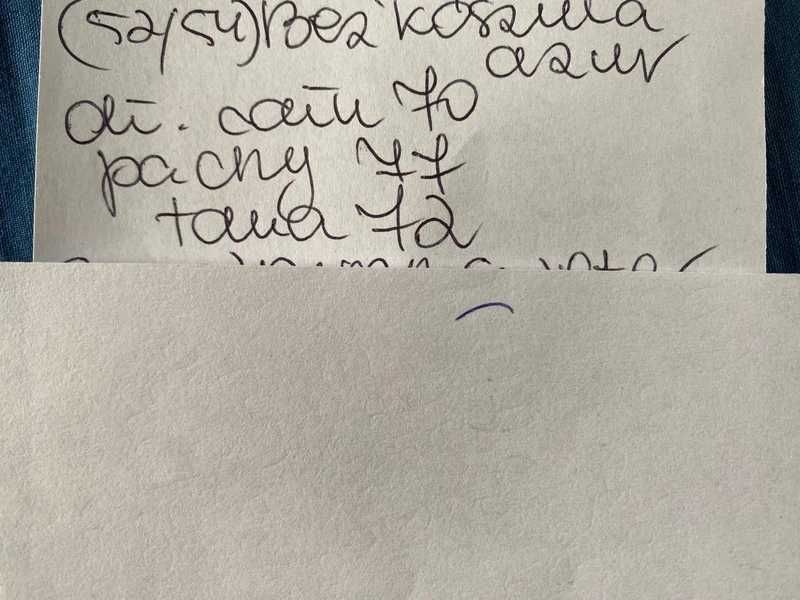 (52/54) Beż koszula
azur
dł. całk 70
pachy 77
talia 72